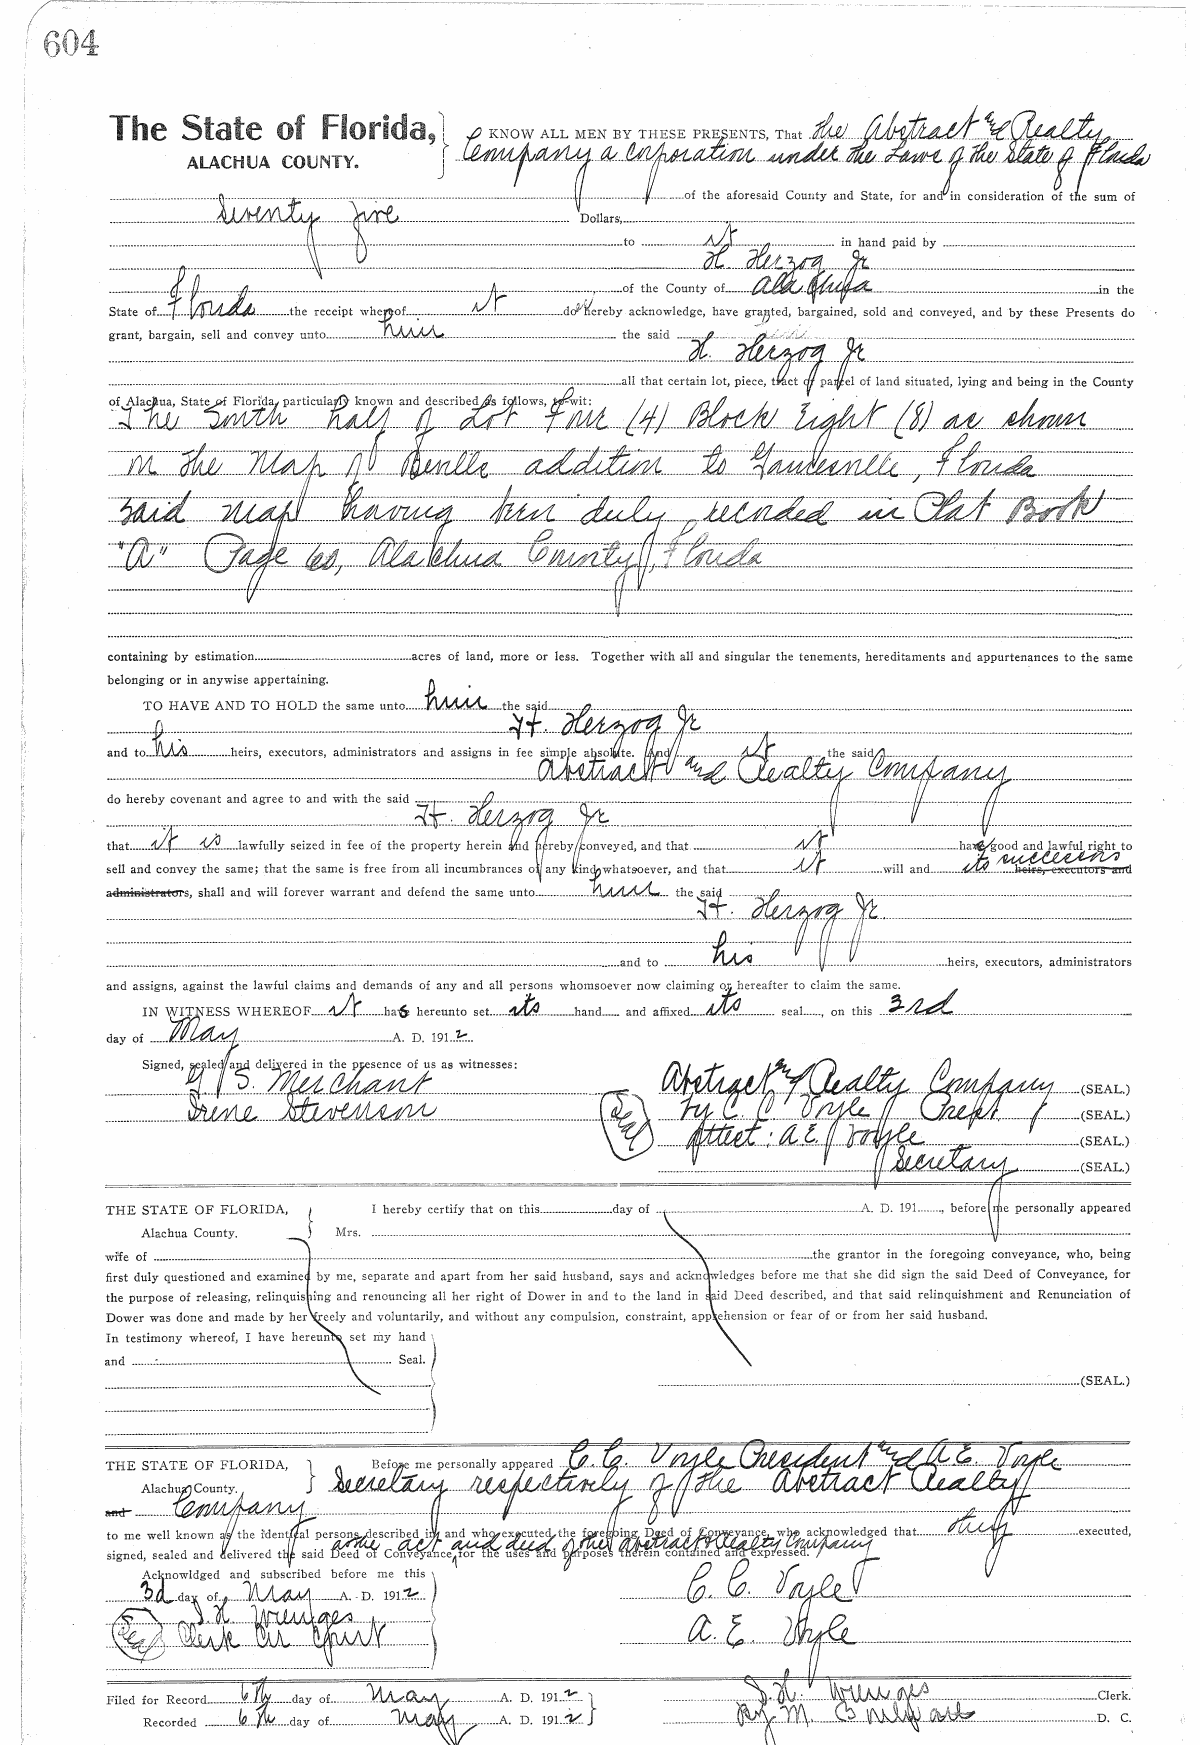 604
The State of Florida,
ALACHUA COUNTY.
KNOW ALL MEN BY THESE PRESENTS, That the Abstract and Realty
Company a corporation under the Laws of the State of Florida
of the aforesaid County and State, for and in consideration of the sum of
Seventy five Dollars,
to it in hand paid by
H. Herzog Jr
of the County of Alachua in the
State of Florida the receipt whereof it does hereby acknowledge, have granted, bargained, sold and conveyed, and by these Presents do
grant, bargain, sell and convey unto him the said
H. Herzog Jr
all that certain lot, piece, tract or parcel of land situated, lying and being in the County
of Alachua, State of Florida, particularly known and described as follows, to-wit:
The South half of Lot Four (4) Block Eight (8) as shown
on the Map of Bevills addition to Gainesville, Florida
said map having been duly recorded in Plat Book
"A" Page 60, Alachua County, Florida
containing by estimation acres of land, more or less. Together with all and singular the tenements, hereditaments and appurtenances to the same
belonging or in anywise appertaining.
TO HAVE AND TO HOLD the same unto him the said
H. Herzog Jr
and to his heirs, executors, administrators and assigns in fee simple absolute. And it the said
Abstract and Realty Company
do hereby covenant and agree to and with the said
H. Herzog Jr
that it is lawfully seized in fee of the property herein and hereby conveyed, and that it has good and lawful right to
sell and convey the same; that the same is free from all incumbrances of any kind whatsoever, and that it will and its successors heirs, executors and
administrators, shall and will forever warrant and defend the same unto him the said
H. Herzog Jr.
and to his heirs, executors, administrators
and assigns, against the lawful claims and demands of any and all persons whomsoever now claiming or hereafter to claim the same.
IN WITNESS WHEREOF it has hereunto set its hand and affixed its seal, on this 3rd
day of May A. D. 1912
Signed, sealed and delivered in the presence of us as witnesses:
G. S. Merchant
Irene Stevenson
Seal
Abstract and Realty Company (SEAL.)
by C. C. Voyle Prest (SEAL.)
Attest: A. E. Voyle (SEAL.)
Secretary (SEAL.)
THE STATE OF FLORIDA,
Alachua County.
I hereby certify that on this day of A. D. 191, before me personally appeared
Mrs.
wife of the grantor in the foregoing conveyance, who, being
first duly questioned and examined by me, separate and apart from her said husband, says and acknowledges before me that she did sign the said Deed of Conveyance, for
the purpose of releasing, relinquishing and renouncing all her right of Dower in and to the land in said Deed described, and that said relinquishment and Renunciation of
Dower was done and made by her freely and voluntarily, and without any compulsion, constraint, apprehension or fear of or from her said husband.
In testimony whereof, I have hereunto set my hand
and Seal.
(SEAL.)
THE STATE OF FLORIDA,
Alachua County.
Before me personally appeared C. C. Voyle President and A. E. Voyle
Secretary respectively of the Abstract Realty
and Company
to me well known as the identical persons described in and who executed the foregoing Deed of Conveyance, who acknowledged that they executed,
as the act and deed of the Abstract & Realty Company
signed, sealed and delivered the said Deed of Conveyance, for the uses and purposes therein contained and expressed.
Acknowldged and subscribed before me this
3d day of May A. D. 1912
S. H. Wienges
Seal Clerk Cir Court
C. C. Voyle
A. E. Voyle
Filed for Record 6th day of May A. D. 1912
Recorded 6th day of May A. D. 1912
S. H. Wienges Clerk.
By M. D. C.